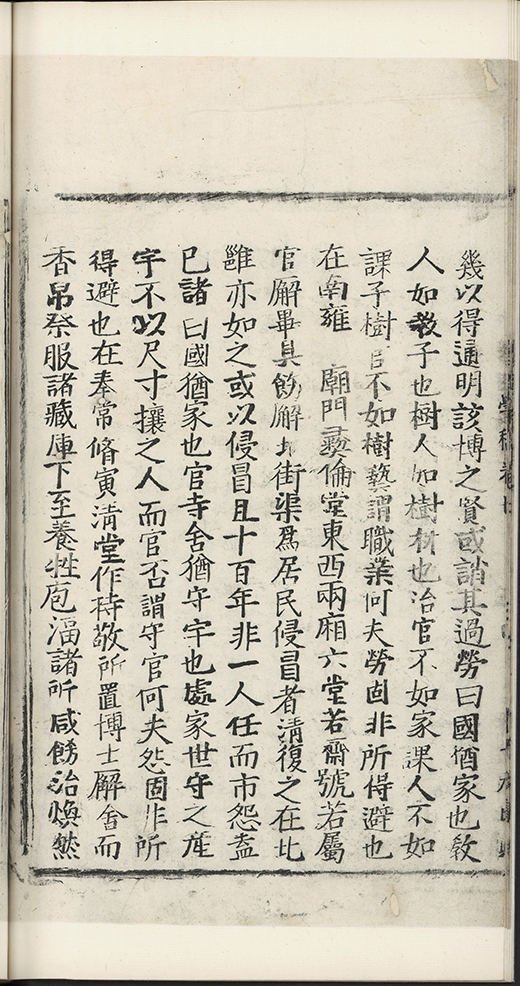 幾以得通明該博之賢或誚其過勞曰國猶家也敎
人如敎子也樹人如樹材也治官不如家課人不如
課子樹官不如樹藝謂職業何夫勞固非所得避也
在南雍　廟門彝倫堂東西兩廂六堂若齋號若屬
官廨畢具飭廨北街渠爲居民侵冒者清復之在北
雝亦如之或以侵冒且十百年非一人任而市怨盍
已諸曰國猶家也官寺舍猶守宇也處家世守之產
宇不以尺寸攘之人而官否謂守官何夫怨固非所
得避也在奉常脩寅清堂作待敬所置博士廨舍而
香帛祭服諸藏庫下至養牲庖湢諸所咸飭治煥然